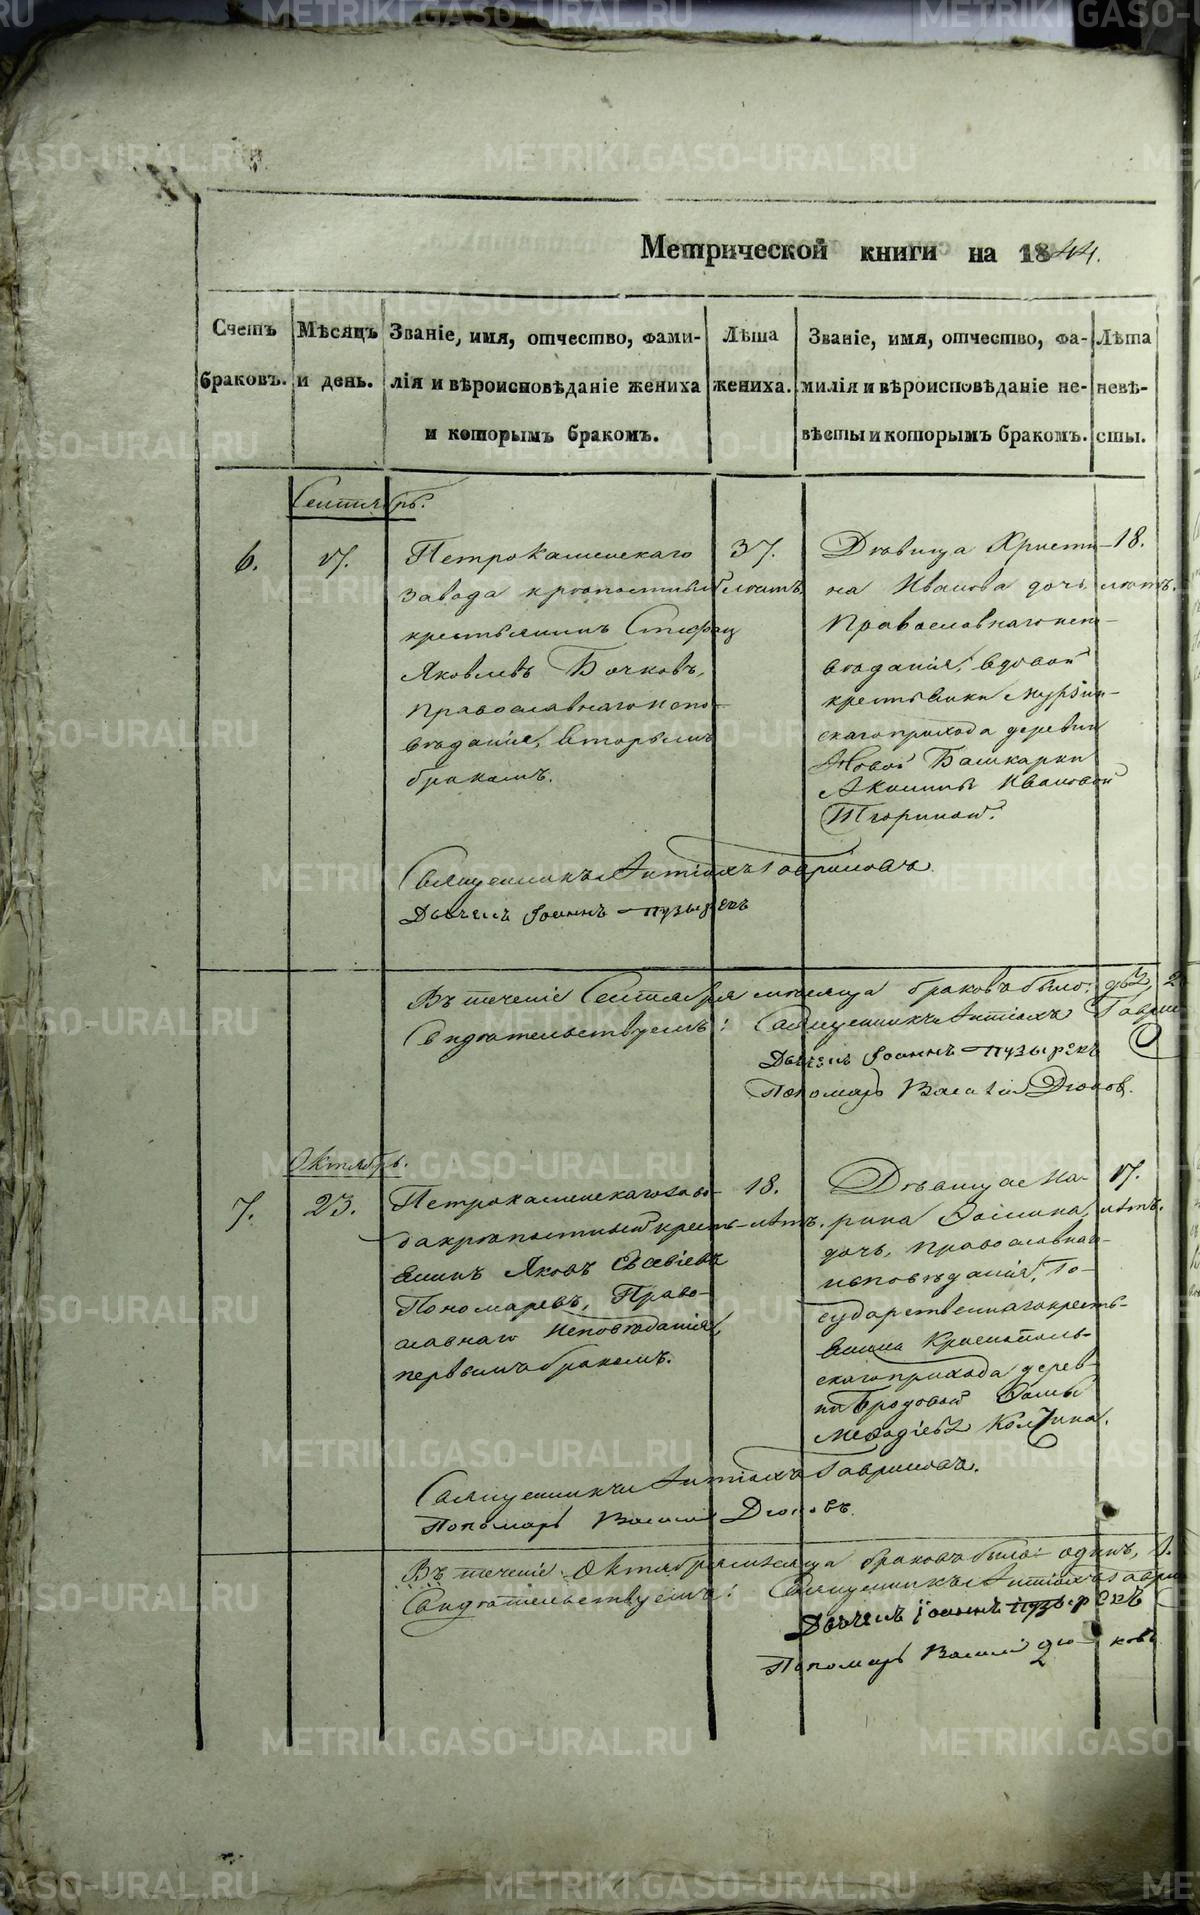 METRIKI.GASO-URAL.RU
Метрической книги на 1844.
Счетъ браковъ.
Мѣсяцъ и день.
Званіе, имя, отчество, фами-
лія и вѣроисповѣданіе жениха
и которымъ бракомъ.
Лѣта
жениха.
Званіе, имя, отчество, фа-
милія и вѣроисповѣданіе не-
вѣсты и которымъ бракомъ.
Лѣта
невѣ-
сты.
Сентябрь.
6.
17.
Петрокаменскаго
завода крѣпостный
крестьянинъ Стефан
Яковлевъ Бочковъ,
православнаго испо-
вѣданія, вторымъ
бракомъ.
37.
лѣтъ.
Дѣвица Христи-
на Иванова дочь
Православнаго испо-
вѣданія, вдовой
крестьянки Мурзин-
скаго прихода деревни
Новой Башкарки
Акилины Ивановой
18.
лѣтъ.
Священникъ Антіохъ Гавриловъ
Дьячекъ Іоаннъ Пузырекъ
Въ теченіе Сентября мѣсяца браковъ было: два, 2
Свидѣтельствуемъ: Священникъ Антіохъ Гаври
Дьячекъ Іоаннъ Пузырекъ
Пономарь Василій Дюковъ.
Октябрь.
7.
23.
Петрокаменскаго заво-
да крѣпостный кресть-
янинъ Яковъ Евсевіевъ
Пономаревъ, Право-
славнаго исповѣданія,
первымъ бракомъ.
18.
лѣтъ.
Дѣвица Ма-
рина Ѳомина,
дочь, православнаго
исповѣданія, Го-
сударственнаго кресть-
янина Краснополь-
скаго прихода дерев-
ни Бродовой Ѳомы
Меѳодіева
17.
лѣтъ.
Священникъ Антіохъ Гавриловъ.
Пономарь Василій Дюковъ.
Въ теченіе Октября мѣсяца браковъ было: одинъ, 1.
Свидѣтельствуемъ: Священникъ Антіохъ Гаври
Дьячекъ Іоаннъ Пузырекъ
Пономарь Василій Дюковъ